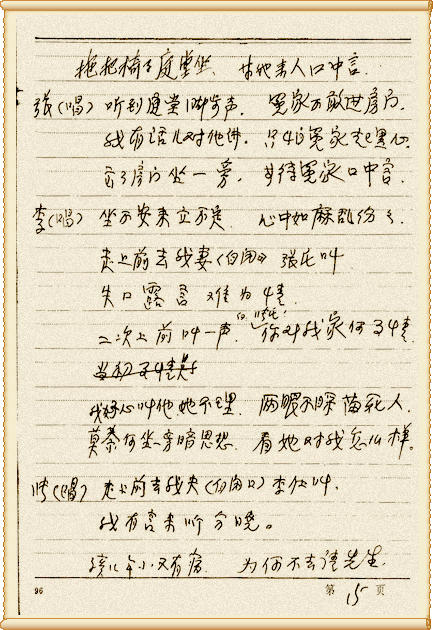 拖把椅子庭堂坐 等他来人口中言.
张(唱) 听到庭堂脚步声. 冤家不敢进房门.
我有话儿对他讲. 只怕冤家起黑心.
房门坐一旁. 等待冤家口中言.
李(唱) 坐不安来立不是. 心中如麻乱纷纷.
走上前去我妻(白闭口) 张氏叫
失口露言难为情.
二次上前叫一声. 你对我家何了情.
我好心叫他她不理. 两眼不睬苗死人.
莫奈何坐旁暗思想. 看她对我怎么样.
(唱) 走上前去我夫(白闭口) 李仕叫.
我有言来听分晓。
孩儿年小又有病. 为何不去请先生.
96 第 15 页